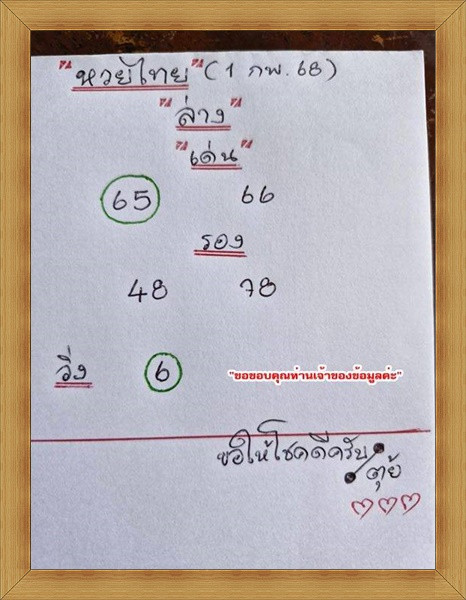 "หวยไทย" (1 กพ. 68)
"ล่าง"
"เด่น"
65 66
รอง
48 78
วิ่ง 6
"ขอขอบคุณท่านเจ้าของข้อมูลค่ะ"
ขอให้โชคดีครับ
ตุ้ย